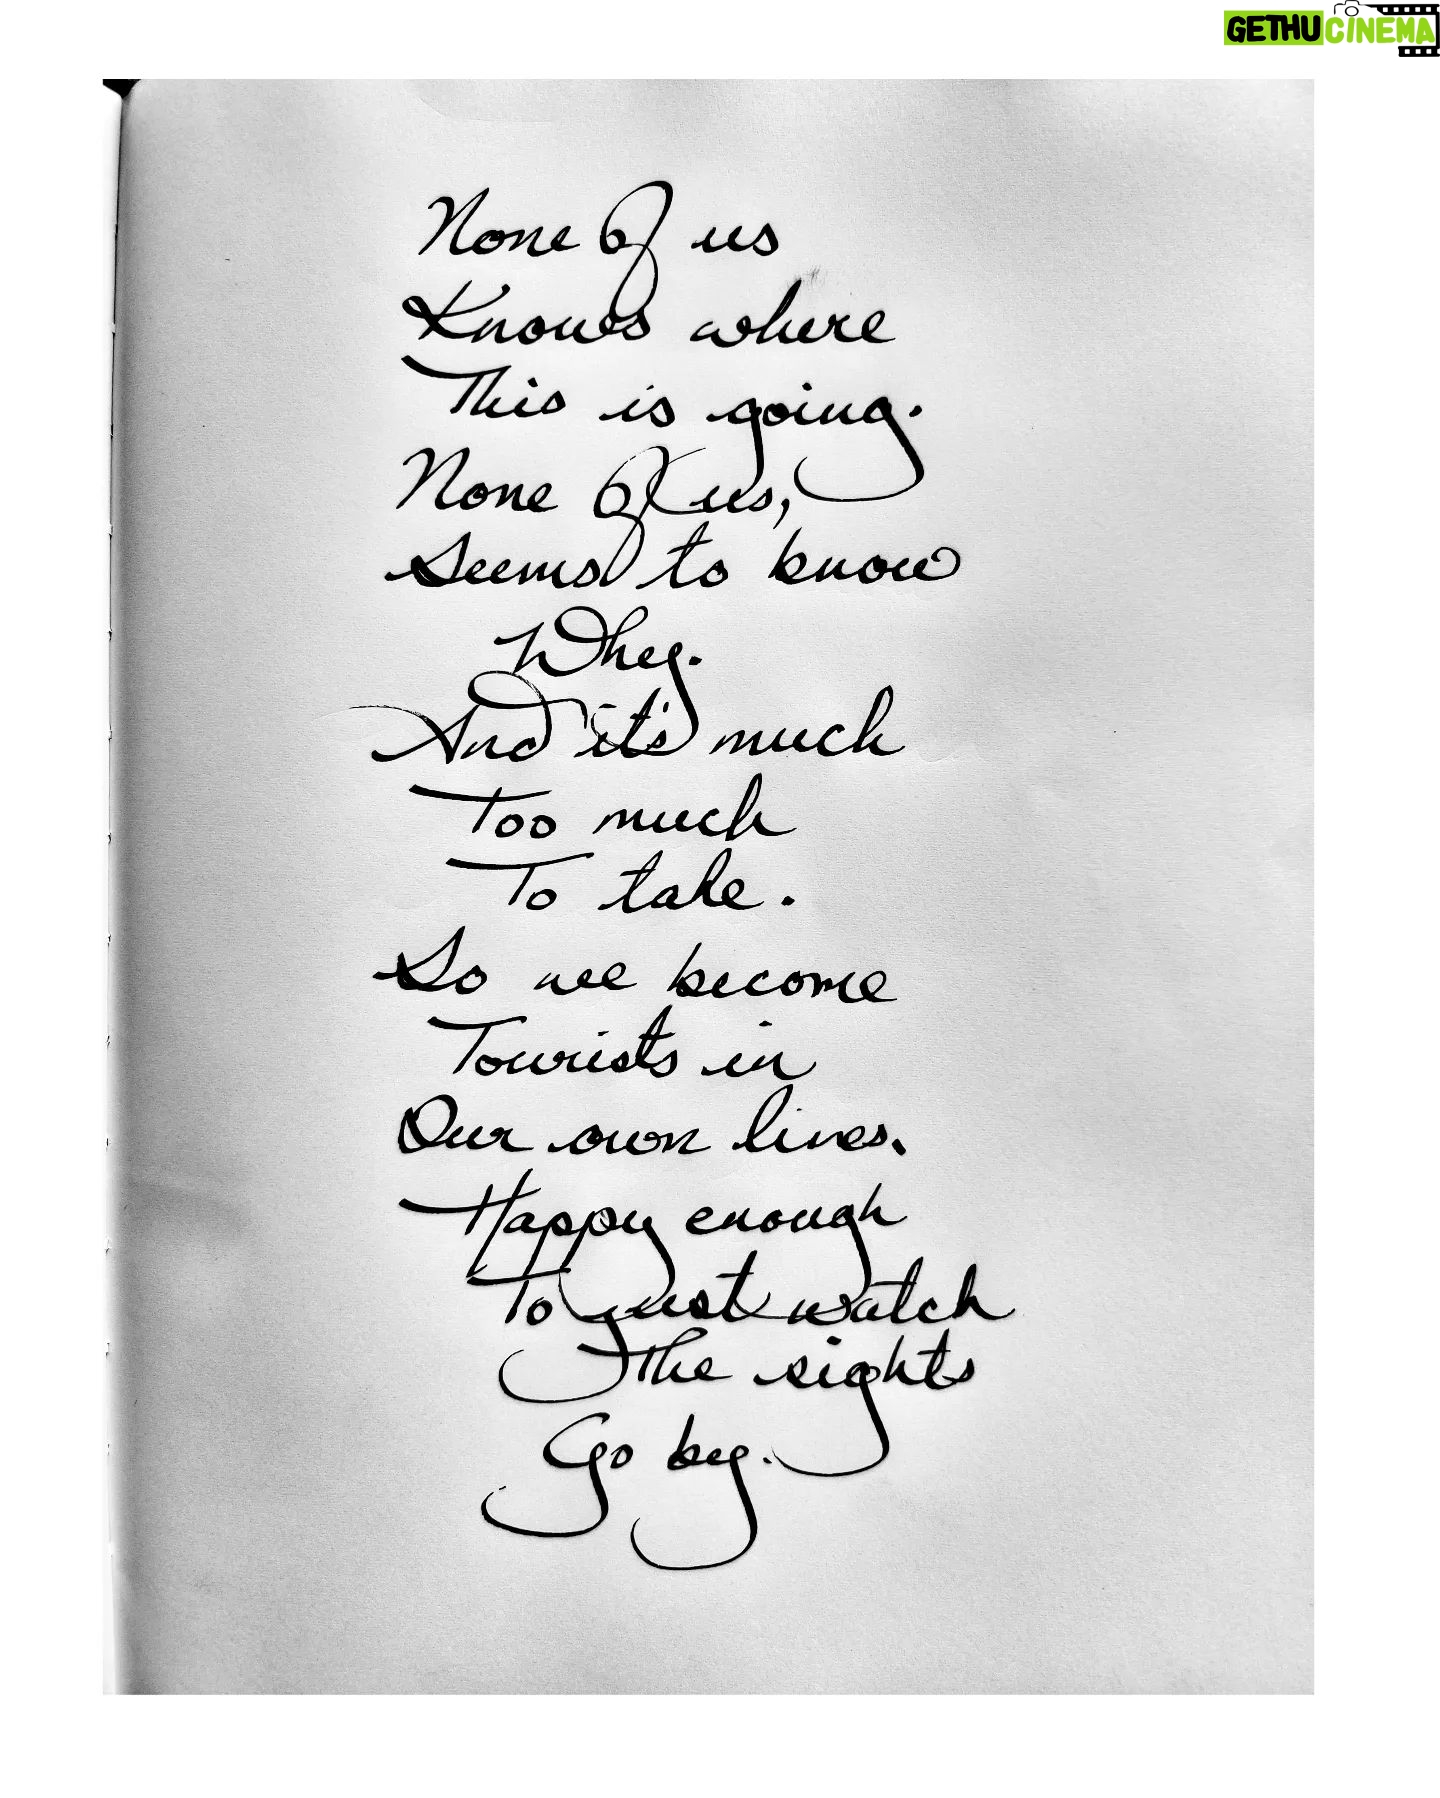 GETHUCINEMA
None of us
Knows where
This is going.
None of us,
Seems to know
Why.
And it's much
Too much
To take.
So we become
Tourists in
Our own lives.
Happy enough
To just watch
The sights
Go by.